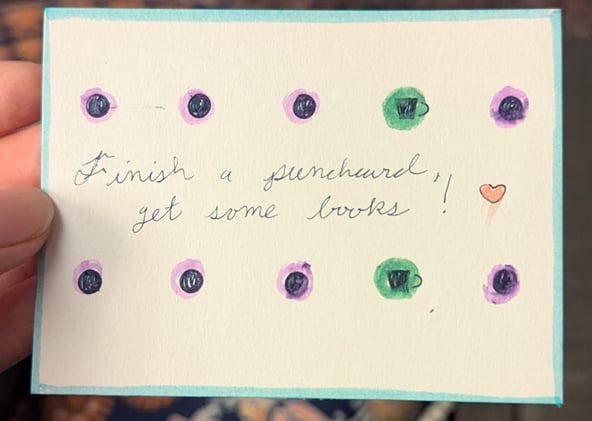 Finish a punchcard,
get some books!